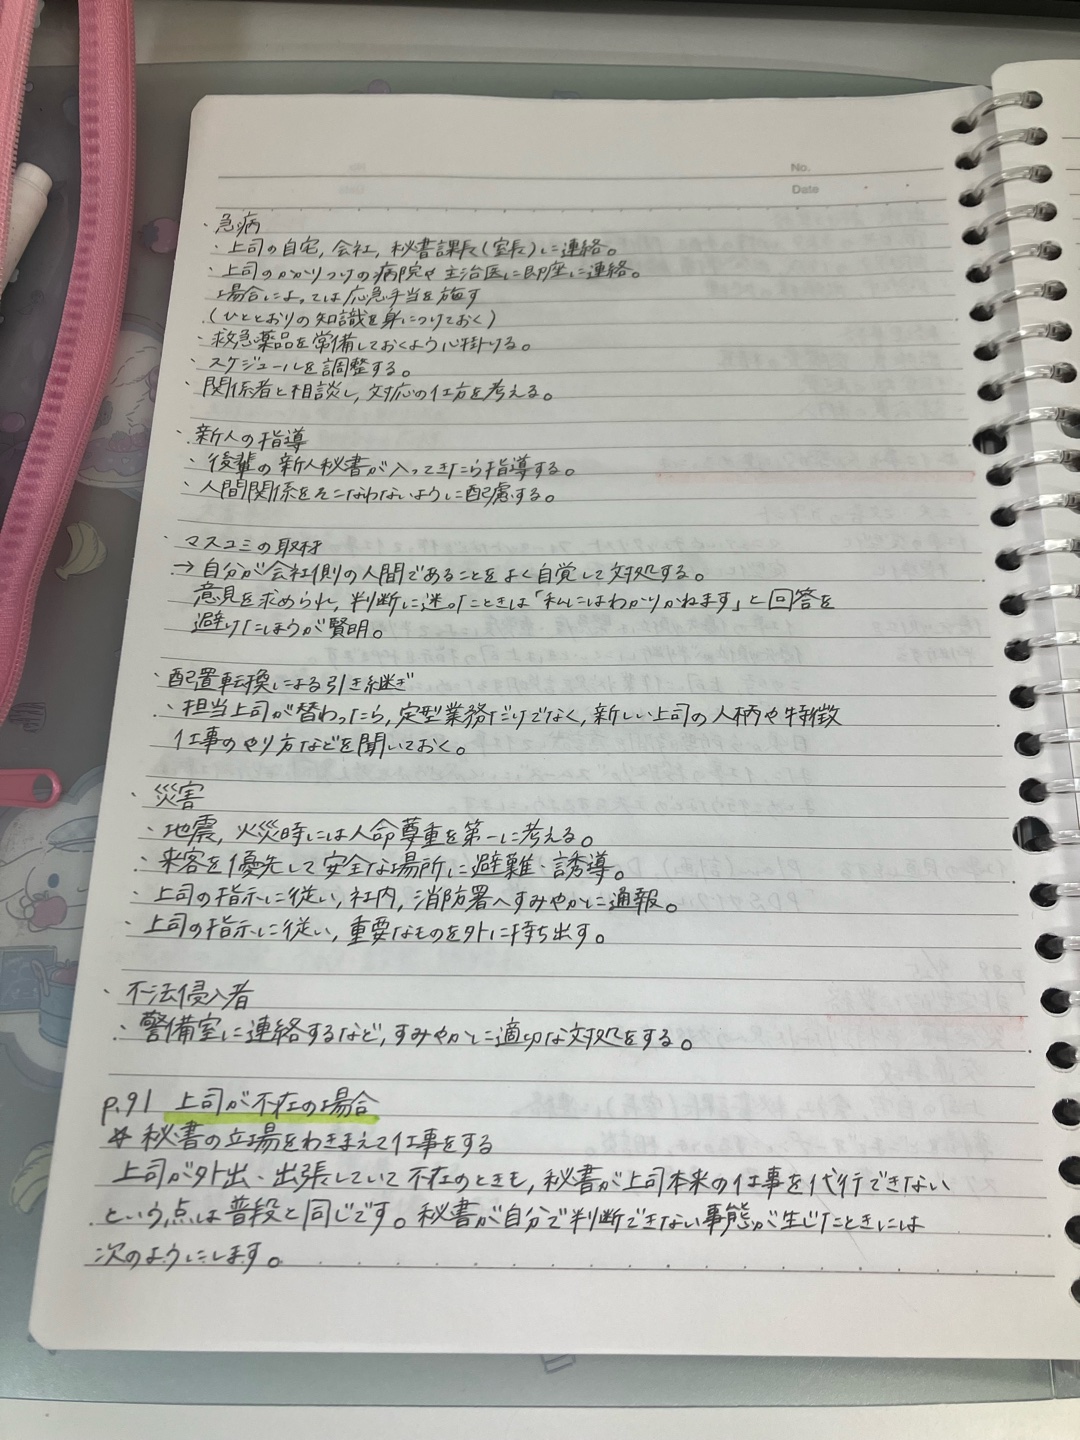 No.
Date
・急病
・上司の自宅,会社,秘書課長(室長)に連絡。
・上司のかかりつけの病院や主治医に即座に連絡。
場合によっては応急手当を施す
(ひととおりの知識を身につけておく)
・救急薬品を常備しておくよう心掛ける。
・スケジュールを調整する。
・関係者と相談し,対応の仕方を考える。
・新人の指導
・後輩の新人秘書が入ってきたら指導する。
・人間関係をそこなわないように配慮する。
・マスコミの取材
→自分が会社側の人間であることをよく自覚して対処する。
意見を求められ,判断に迷ったときは「私にはわかりかねます」と回答を
避けたほうが賢明。
・配置転換による引き継ぎ
・担当上司が替わったら,定型業務だけでなく,新しい上司の人柄や特徴
仕事のやり方などを聞いておく。
・災害
・地震,火災時には人命尊重を第一に考える。
・来客を優先して安全な場所に避難・誘導。
・上司の指示に従い,社内,消防署へすみやかに通報。
・上司の指示に従い,重要なものを外に持ち出す。
・不法侵入者
・警備室に連絡するなど,すみやかに適切な対処をする。
p.91 上司が不在の場合
☆秘書の立場をわきまえて仕事をする
上司が外出・出張していて不在のときも,秘書が上司本来の仕事を代行できない
という点は普段と同じです。秘書が自分で判断できない事態が生じたときには
次のようにします。